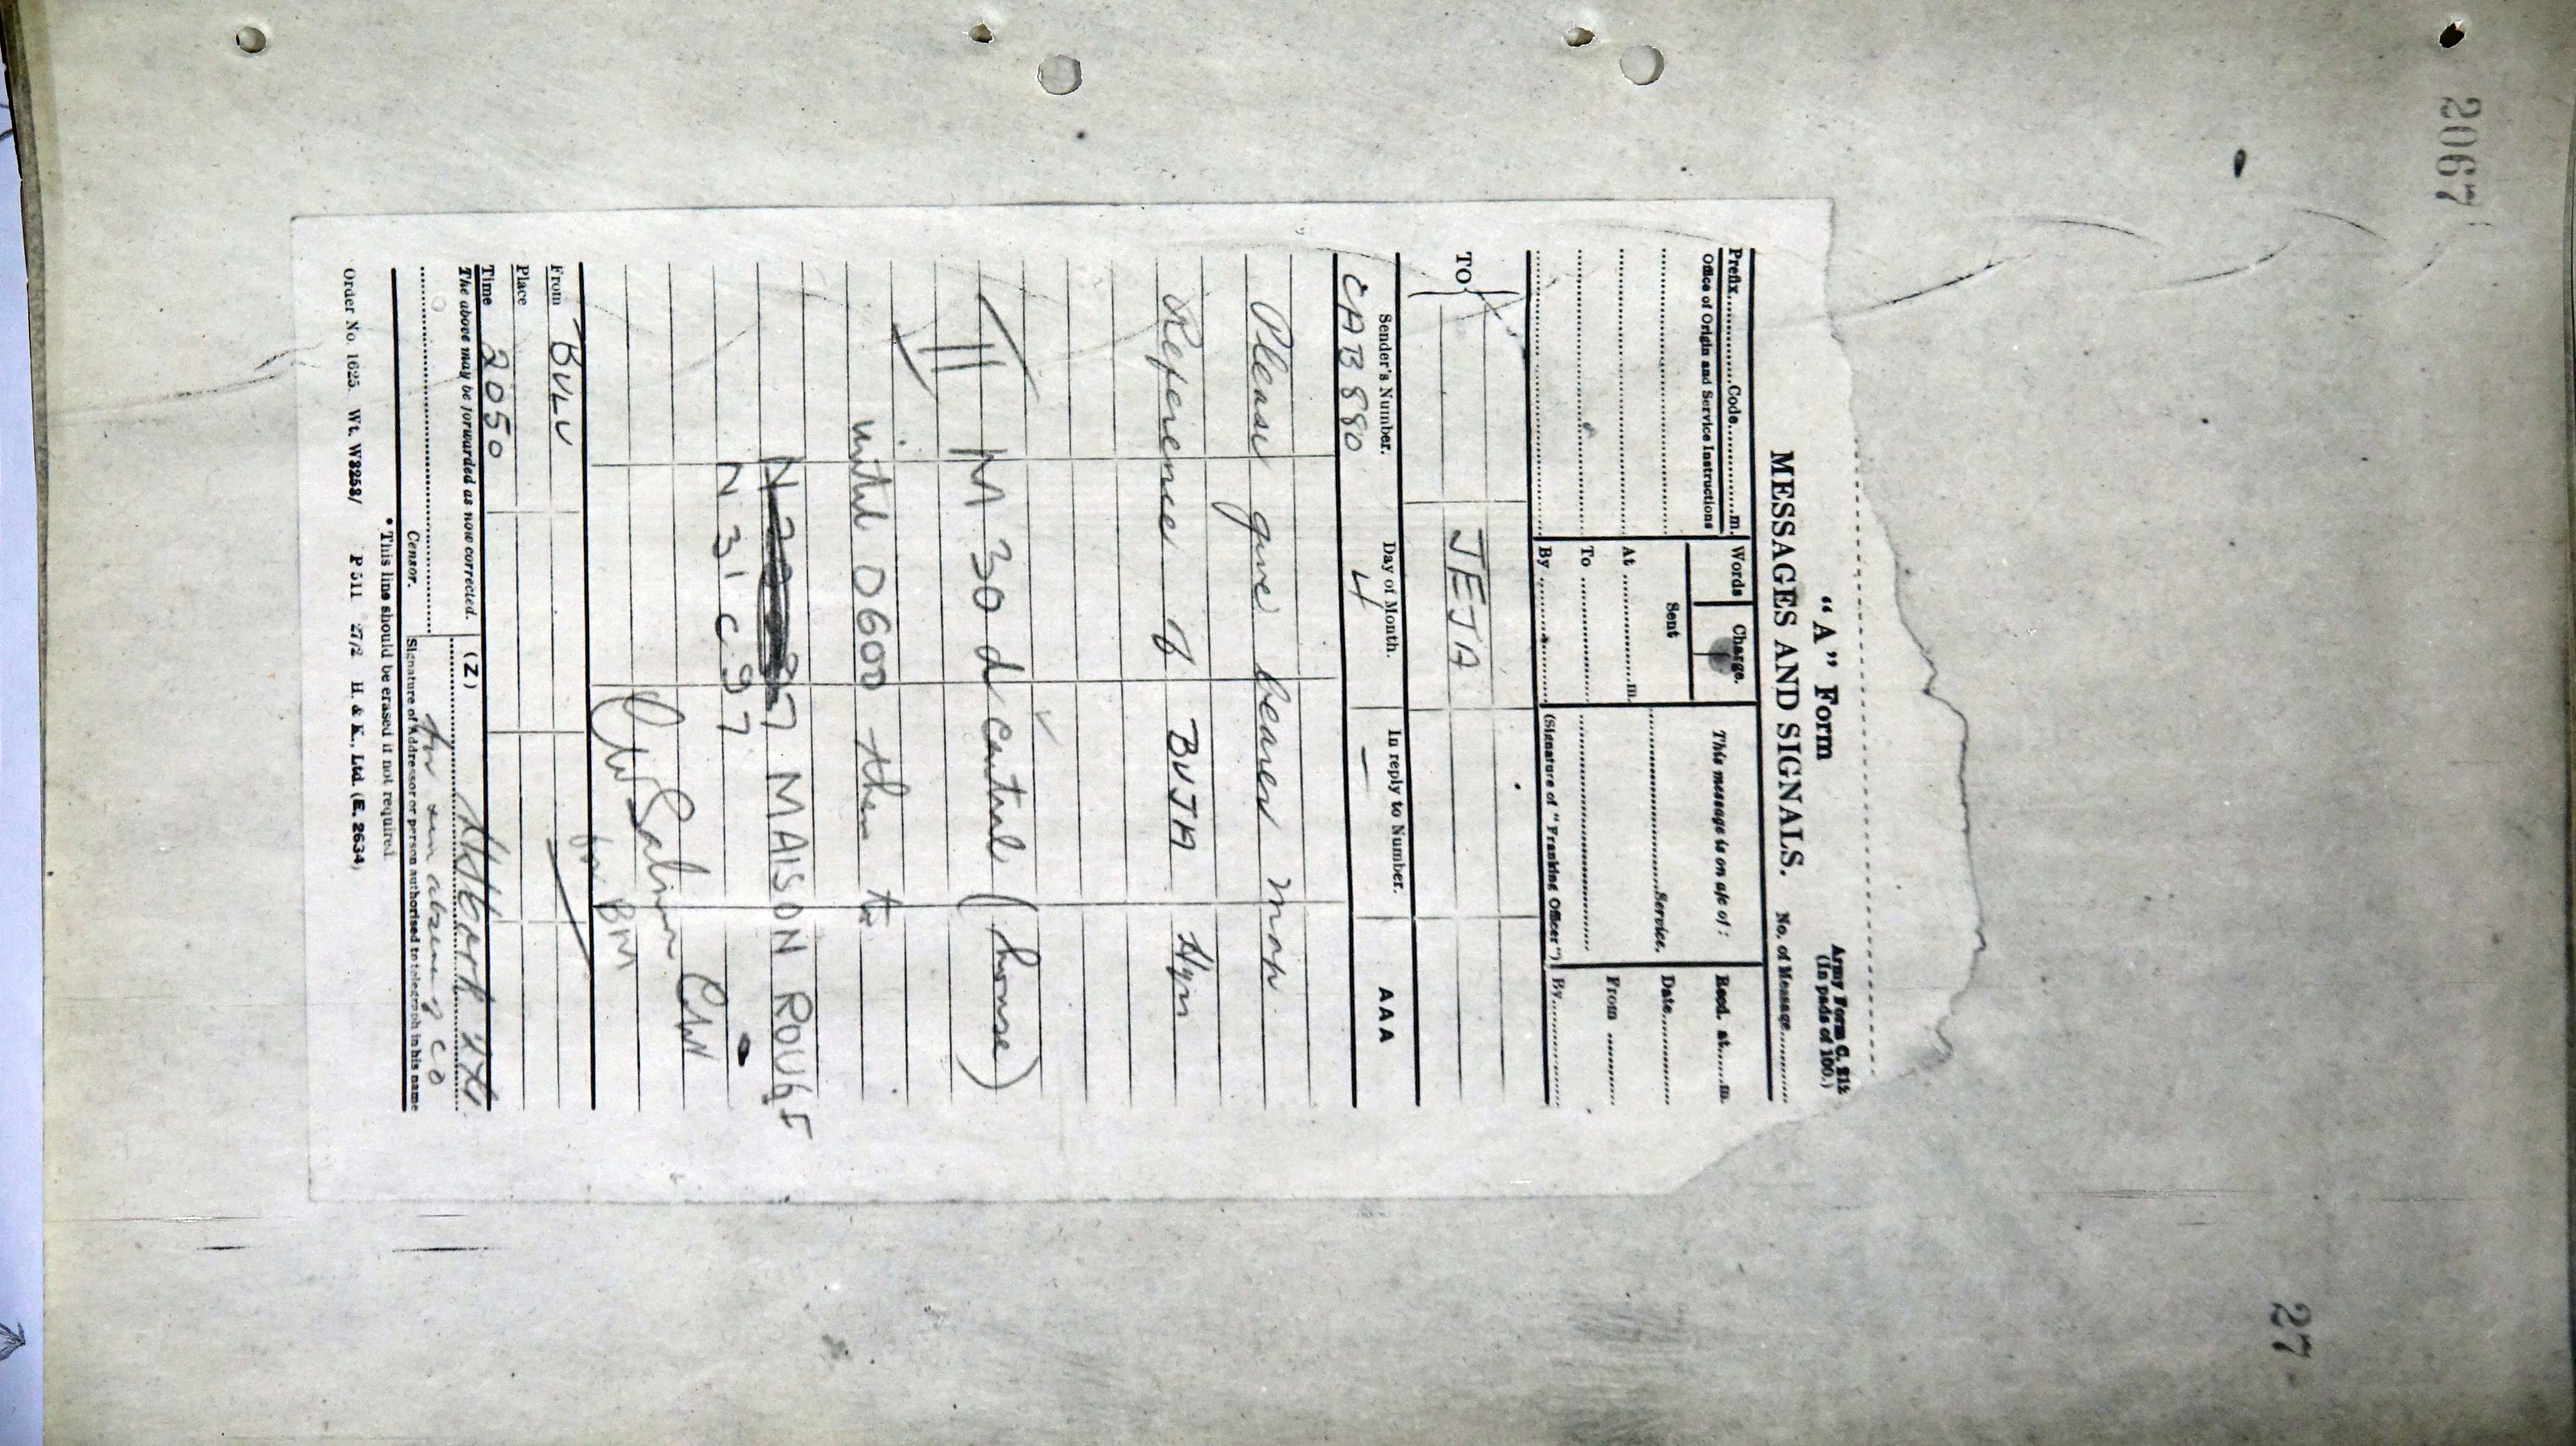 2067
27
"A" Form
Army Form C. 2121
(In pads of 100.)
MESSAGES AND SIGNALS.
No. of Message............
Prefix............Code............m.
Words
Charge.
This message is on a/c of :
Recd. at......m.
Office of Origin and Service Instructions
Sent
At ............m.
............Service.
Date............
To ............
From ............
By ............
(Signature of "Franking Officer")
By............
TO
JEJA
Sender's Number.
Day of Month.
In reply to Number.
AAA
CAB 880
4
—
Please give bearer map
Reference of BUJA Hqrs
M 30 d central (house)
until 0600 then to
N 97 MAISON ROUGE
N 31 c 97
CHW
for BM
From BULU
Place
Time 2050
The above may be forwarded as now corrected.
(Z)
for in absence of CO
Censor.
Signature of Addressor or person authorised to telegraph in his name
*This line should be erased if not required.
Order No. 1625. Wt. W3253/ P 511 27/2 H. & K., Ltd. (E. 2634)